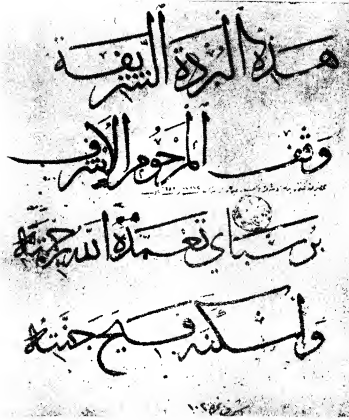 هذه البردة الشريفة
وقف المرحوم الاشرف
برسباي تغمده الله برحمته
واسكنه فسيح جنته